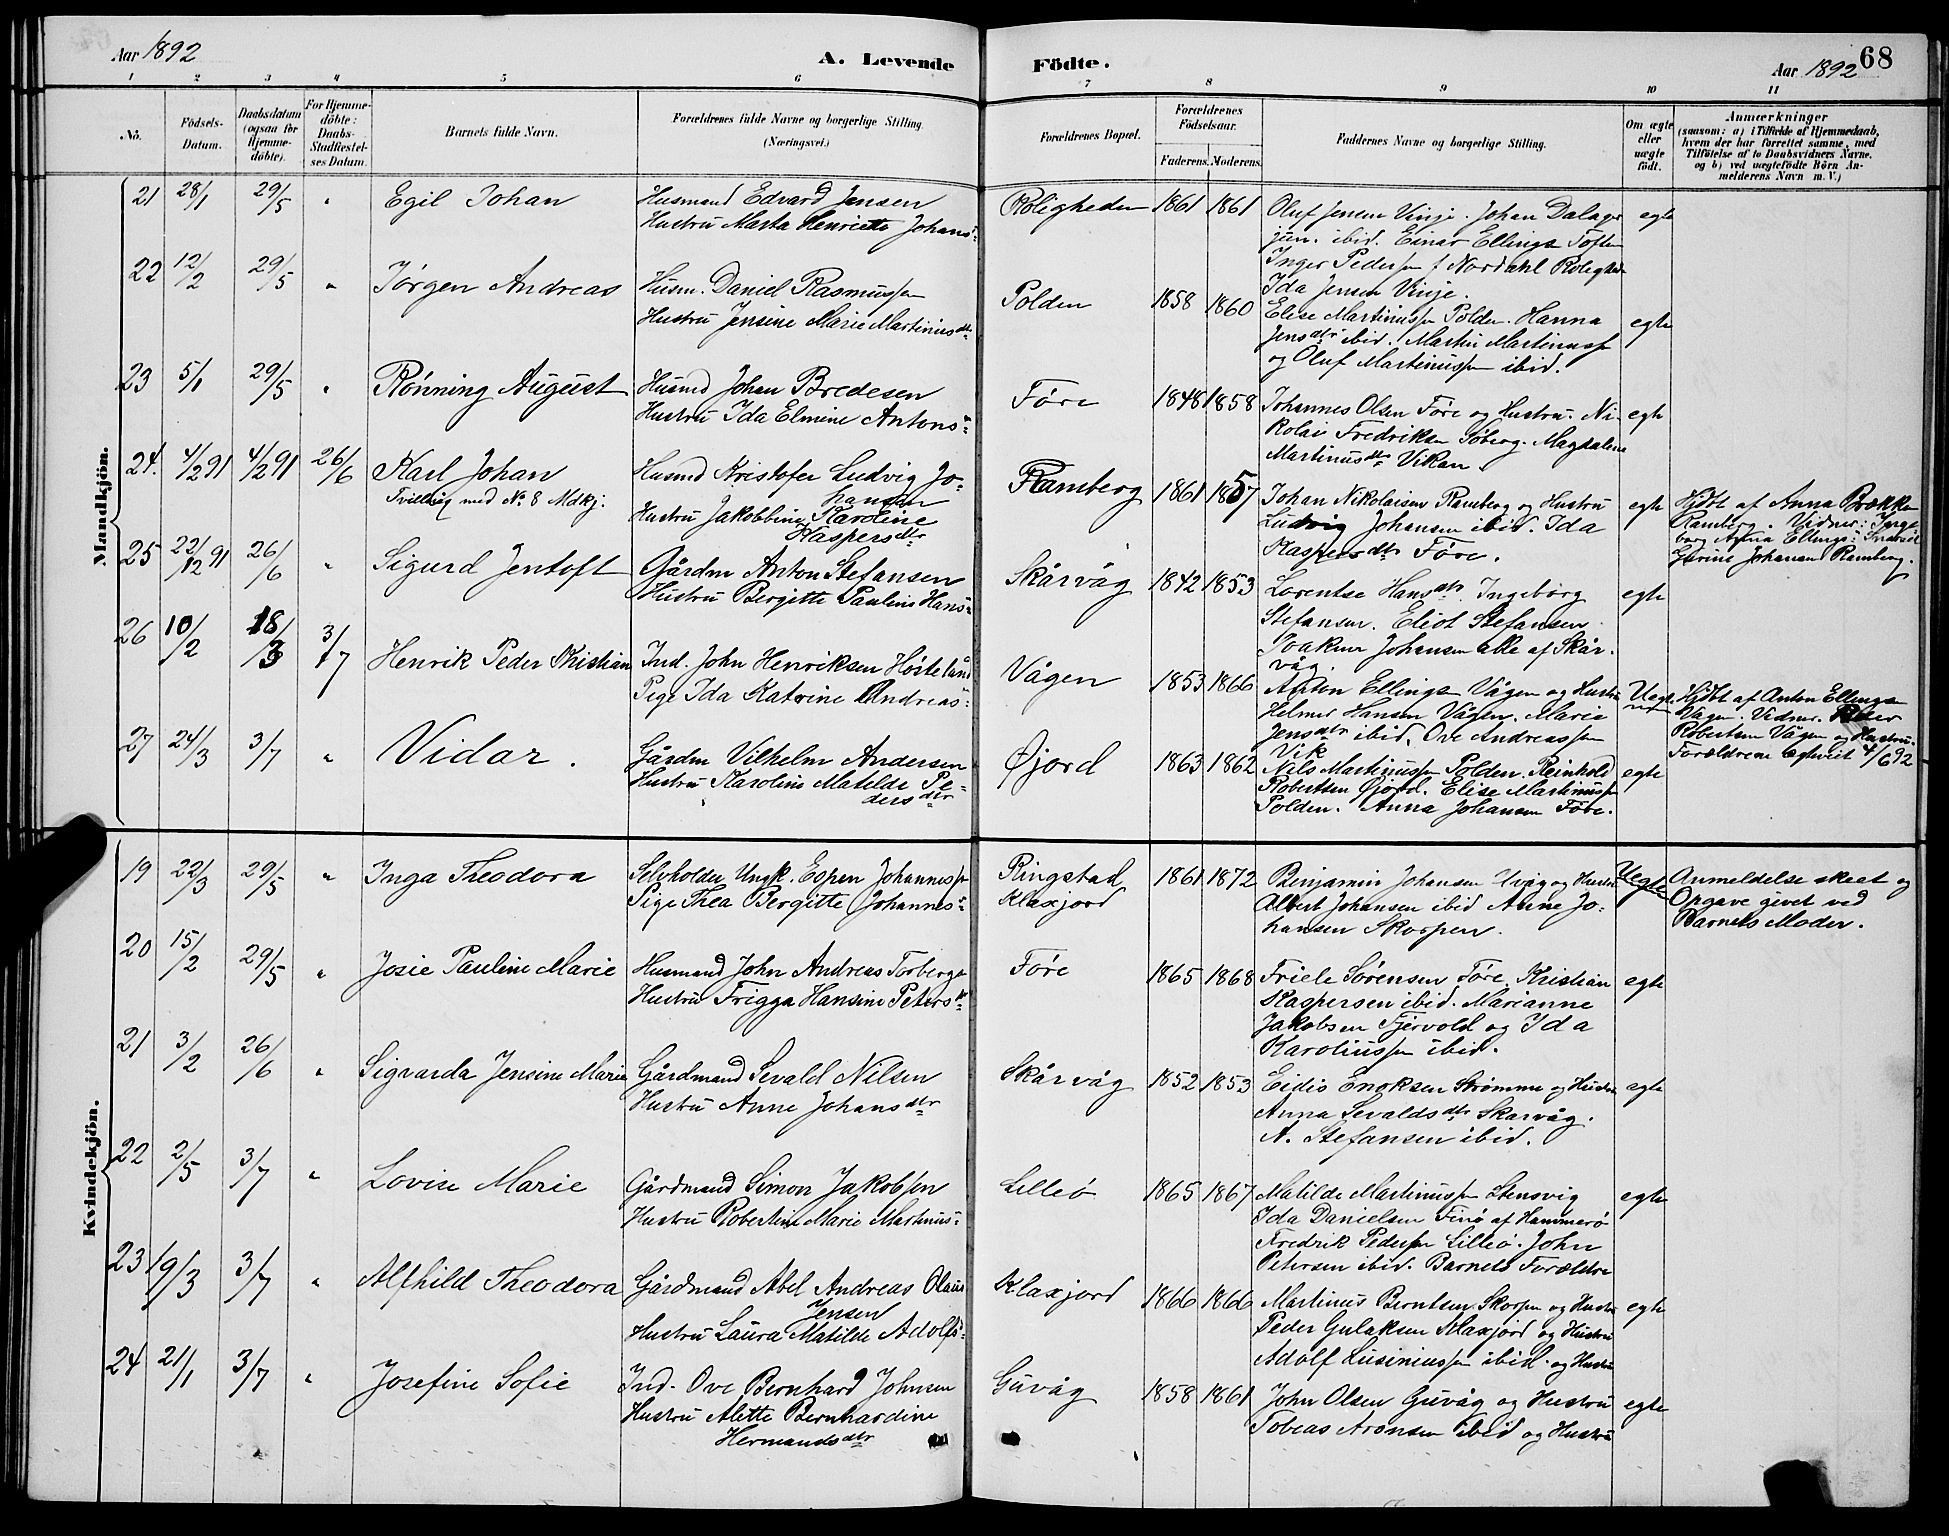 Aar 1892
A. Levende Fødte.
Aar 1892
68
1 2 3 4 5 6 7 8 9 10 11
No.
Födsels-Datum.
Daabsdatum (ogsaa for Hjemme-döbte).
For Hjemme-döbte: Daabs-Stadfæstel-ses Datum.
Barnets fulde Navn.
Forældrenes fulde Navne og borgerlige Stilling. (Næringsvei.)
Forældrenes Bopæl.
Forældrenes Födselsaar.
Faderens. Moderens.
Faddernes Navne og borgerlige Stilling.
Om ægte eller uægte födt.
Anmærkninger
(saasom: a) i Tilfælde af Hjemmedaab, hvem der har forrettet samme, med Tilföielse af to Daabsvidners Navne, og b) ved uægtefödte Börn Anmelderens Navn m. V.)
Mandkjön.
21 28/1 29/5 " Egil Johan
Husmand Edvard Jensen
Hustru Marta Henriette Johans:
Roligheden 1861 1861
Oluf Jensen Vinje. Johan Dalager
jun. ibid. Einar Ellings Toften
Inger Pedersen f Nordahl Roligheden
Ida Jensen Vinje.
egte
22 12/2 29/5 " Jørgen Andreas
Husm. Daniel Rasmussen
Hustru Jensine Marie Martinius dtr
Polden 1858 1860
Elise Martinussen Polden. Hanna
Jensdtr ibid. Martin Martinussen
og Oluf Martinussen ibid.
egte
23 5/1 29/5 " Rønning August
Husmd Johan Bredesen
Hustru Ida Elmine Antons:
Føre 1848 1858
Johannes Olsen Føre og Hustru. Ni-
kolai Fredriksen Søberg. Magdalena
Martinusdtr Vikan.
egte
24. 4/2 91 4/2 91 26/6 Karl Johan
Tvilling med No. 8 Mdkj.
Husmd Kristofer Ludvig Jo-
hansen
Hustru Jakobbine Karoline
Kaspersdtr
Ramberg 1861 1857
Johan Nikolaisen Ramberg og Hustru
Ludvig Johansen ibid. Ida
Kaspersdtr Føre.
egte
Hjdbt af Anna Brække
Ramberg. Vidner: Inge-
borg Anna Ellings:
Gurine Johansen Ramberg.
25 22/12 91 26/6 " Sigurd Jentoft
Gårdm Anton Stefansen
Hustru Bergitte Pauline Hans:
Skårvåg 1842 1853
Lorentse Hansdtr. Ingeborg
Stefansen. Eliot Stefansen.
Joakim Johansen alle af Skår-
våg.
egte
26 10/2 18/3 3/7 Henrik Peder Kristian
Ind. John Henriksen Hørteland
Pige Ida Katrine Andreas:
Vågen 1853 1866
Anton Ellings Vågen og Hustru
Helmer Hansen Vågen. Marie
Jensdtr ibid. Ove Andreassen
Vik
Uegte
Hjdbt af Anton Ellings
Vågen. Vidner. Peder
Robertsen Vågen og Hustru.
Forældrene egteviet 4/6 92
27 24/3 3/7 " Vidar.
Gårdm Vilhelm Andersen
Hustru Karoline Matilde Pe-
dersdtr
Øjord 1863 1862
Nils Martinussen Polden. Reinhold
Robertsen Øjord. Elise Martinussen
Polden. Anna Johansen Føre.
egte
Kvindekjön.
19 22/3 29/5 " Inga Theodora
Selvholder Ungk. Espen Johannessen
Pige Thea Bergitte Johannes:
Ringstad
Klaxjord
1861 1872
Benjamin Johansen Urvig og Hustru
Albert Johansen ibid Anne Jo-
hansen Skorpen.
Uegte
Anmeldelse skeet og
Opgave givet ved
Barnets Moder.
20 15/2 29/5 " Josie Pauline Marie
Husmand John Andreas Torbergs
Hustru Frigga Hansine Peters dtr
Føre 1865 1868
Friele Sørensen Føre. Kristian
Kaspersen ibid. Marianne
Jakobsen Fjervold og Ida
Karoliussen ibid.
egte
21 3/2 26/6 " Sigvarda Jensine Marie
Gårdmand Sevald Nilsen
Hustru Anne Johansdtr
Skårvåg 1852 1853
Eidis Enoksen Strømme og Hustru
Anna Sevaldsdtr Skarvåg.
A. Stefansen ibid.
egte
22 2/5 3/7 " Lovise Marie
Gårdmand Simon Jakobsen
Hustru Robertine Marie Martinus:
Lilleø 1865 1867
Matilde Martinussen Stensvig
Ida Danielsen Finø af Hammerø
Fredrik Pedersen Lilleø. John
Petersen ibid. Barnets Forældre
egte
23 19/3 3/7 " Alfhild Theodora
Gårdmand Abel Andreas Olaus
Jensen
Hustru Laura Matilde Adolfs:
Klaxjord 1866 1866
Martinus Berntsen Skorpen og Hustru
Peder Gulaksen Klaxjord og Hustru
Adolf Lusiniussen ibid. og Hustru
egte
24 21/1 3/7 " Josefine Sofie
Ind. Ove Bernhard Johnsen
Hustru Alette Bernhardine
Hermandsdtr
Guvåg 1858 1861
John Olsen Guvåg og Hustru
Tobias Aronsen ibid og Hustru
egte